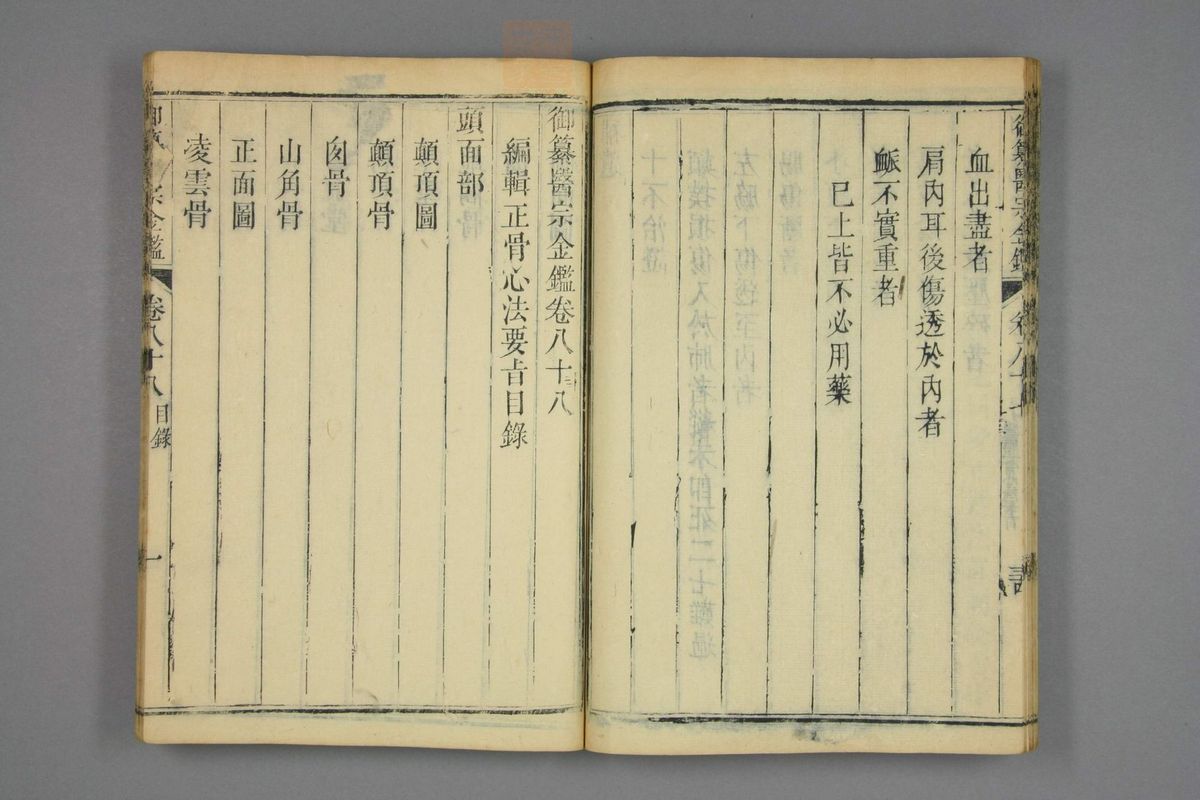 血出盡者
肩內耳後傷透於內者
䘐不實重者
已上皆不必用藥
御纂醫宗金鑑
御纂醫宗金鑑卷八十八
編輯正骨心法要㫖目錄
頭面部
顛頂圖
顛頂骨
囟骨
山角骨
正面圖
凌雲骨
宗金鑑
卷八十八
目錄
一